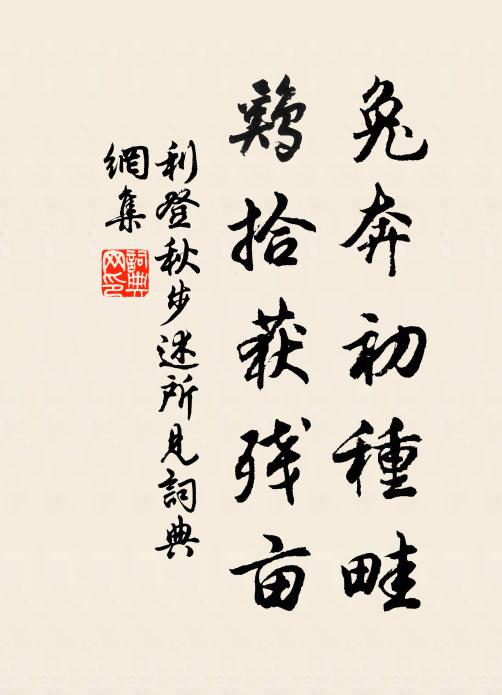 兔奔初種畦
鷄拾获残亩
利登秋步述所見詞典
網集
詞典網印